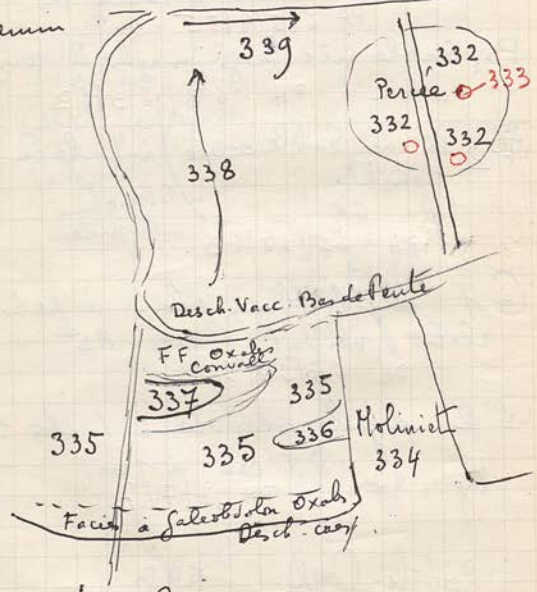 339
332
Percée
333
332
332
338
Desch. Vacc. Bas de Pente
FF Oxalis
Convall
337
335
335
335
336
Moliniet
334
Facies à Galeobdolon Oxalis
Desch. caesp.